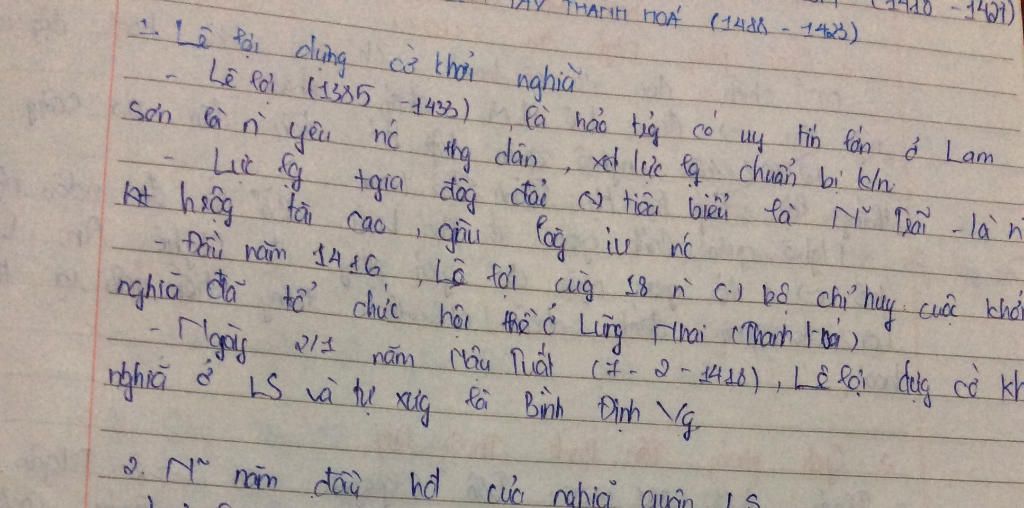 (1418 - 1421)
TÂY THANH HOÁ (1418 - 1423)
1. Lê Lợi dựng cờ khởi nghĩa
- Lê Lợi (1385 - 1433), là hào tg có uy tín lớn ở Lam
Sơn là n yêu nc thg dân, lực lg chuẩn bị k/n
- Lực lg tgia đôg đảo (.) tiêu biểu là Ng~ Trãi - là n
học rộng tài cao, giàu lòg iu nc
- Đầu năm 1416, Lê Lợi cùg 18 n (.) bộ chỉ huy cuộc khởi
nghĩa đã tổ chức hội thề ở Lũng Nhai (Thanh Hoá)
- Ngày 2/1 năm Mậu Tuất (7 - 2 - 1418), Lê Lợi dựg cờ kh
nghĩa ở LS và tự xưg là Bình Định Vg
2. N~ năm đầu hđ của nghĩa quân LS